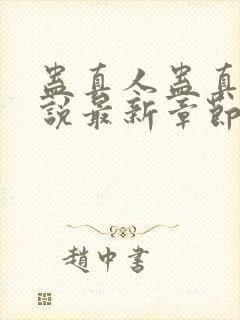 蛊真人蛊真
說最新章節
趙中書